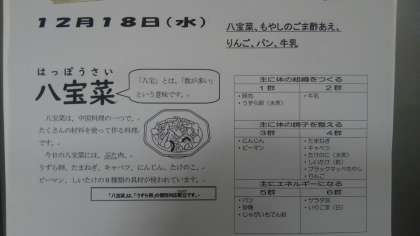 12月18日(水)
八宝菜、もやしのごま酢あえ、
りんご、パン、牛乳
はっぽうさい
八宝菜
「八宝」とは、「数が多い」
という意味です。
八宝菜は、中国料理の一つで、
たくさんの材料を使って作る料理
です。
今日の八宝菜には、ぶた肉、
うずら卵、たまねぎ、キャベツ、にんじん、たけのこ、
ピーマン、しいたけの8種類の具材が使われています。
主に体の組織をつくる
1群 2群
・豚肉
・うずら卵(水煮)
・牛乳
主に体の調子を整える
3群 4群
・にんじん
・ピーマン
・たまねぎ
・キャベツ
・たけのこ(水煮)
・しいたけ(乾)
・ブラックマッペもやし
・りんご
主にエネルギーになる
5群 6群
・パン
・砂糖
・じゃがいもでん粉
・サラダ油
・いりごま(白)